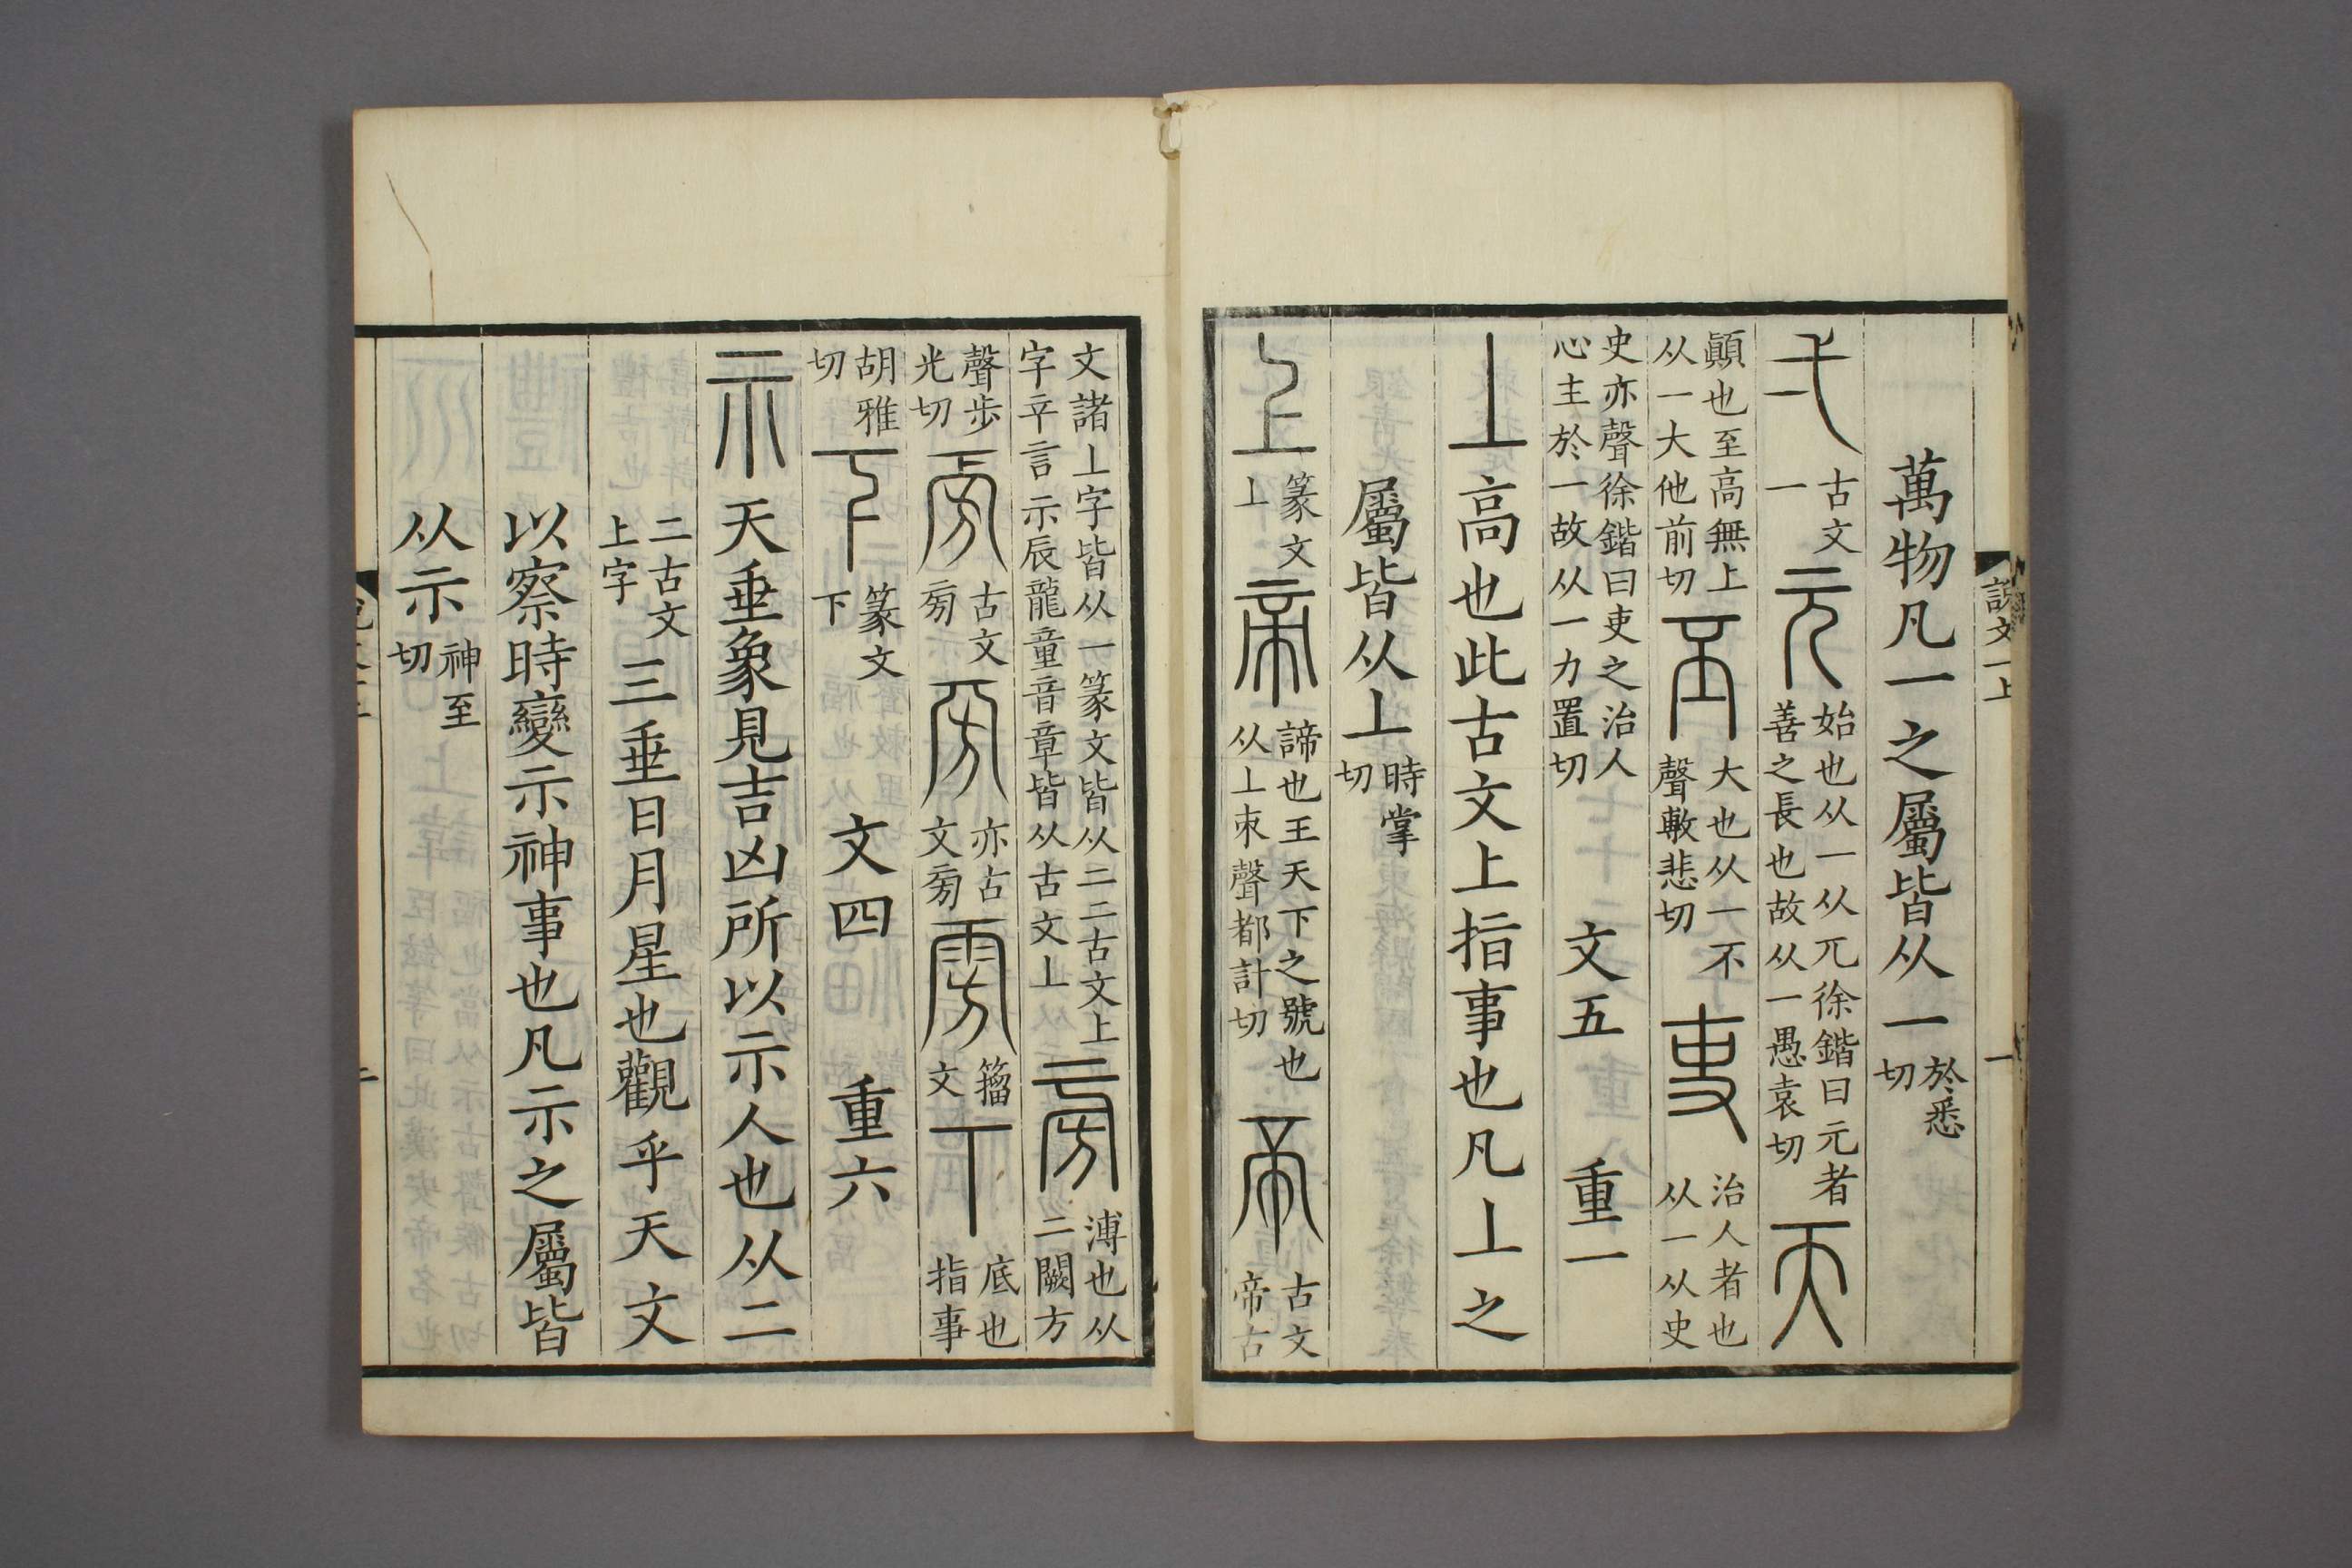 說文一上 一
萬物凡一之屬皆从一於悉切
弌古文一元始也从一从兀徐鍇曰元者善之長也故从一愚袁切天
顚也至高無上从一大他前切丕大也从一不聲敷悲切吏治人者也从一从史
史亦聲徐鍇曰吏之治人心主於一故从一力置切 文五 重一
丄高也此古文上指事也凡丄之
屬皆从丄時掌切
上篆文丄帝諦也王天下之號也从丄朿聲都計切帝古文帝古
文諸丄字皆从一篆文皆从二二古文上字䇂言示辰龍童音章皆从古文丄㫄溥也从二闕方
聲步光切㫄古文㫄㫄亦古文㫄雱籀文丅底也指事
胡雅切下篆文下 文四 重六
示天垂象見吉凶所以示人也从二
二古文上字三垂日月星也觀乎天文
以察時變示神事也凡示之屬皆
从示神至切